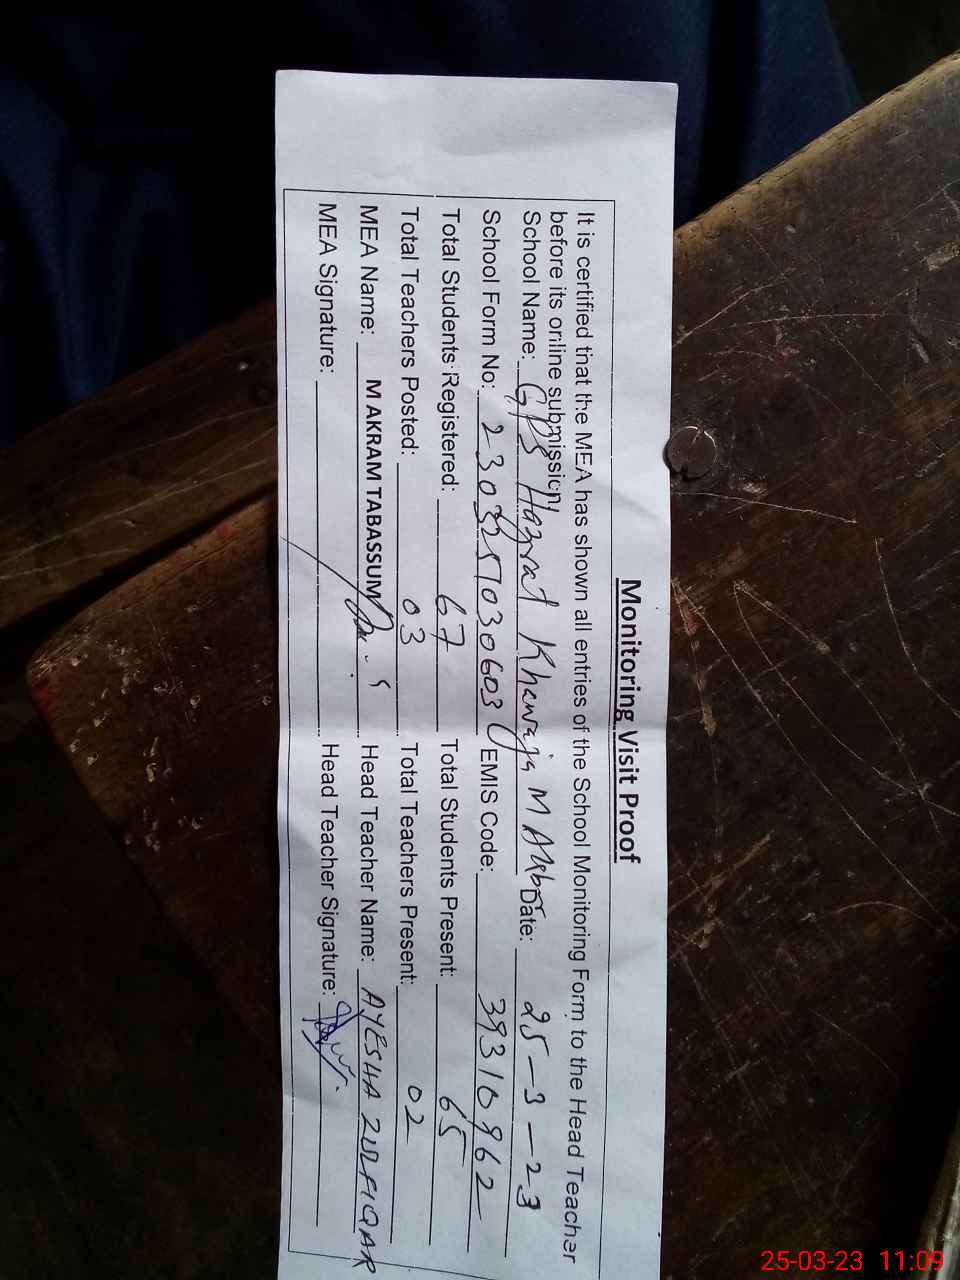 Monitoring Visit Proof
It is certified that the MEA has shown all entries of the School Monitoring Form to the Head Teacher
before its online submission.
School Name: GPS Hazrat Khawaja M Akbar Date: 25-3-23
School Form No: 2303257030603 EMIS Code: 39310962
Total Students Registered: 67 Total Students Present: 65
Total Teachers Posted: 03 Total Teachers Present: 02
MEA Name: M AKRAM TABASSUM Head Teacher Name: AYESHA ZULFIQAR
MEA Signature: Head Teacher Signature:
25-03-23 11:09